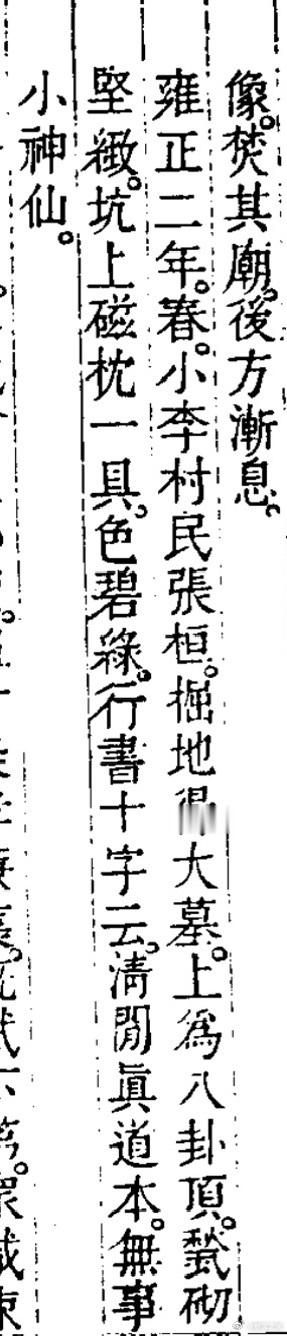 像。焚其廟。後方漸息。
雍正二年。春。小李村民張桓。掘地得大墓。上爲八卦頂。甃砌
堅緻。坑上磁枕一具。色碧綠。行書十字云。淸閒眞道本。無事
小神仙。